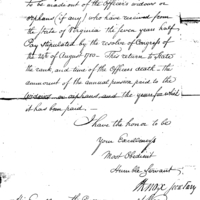 to be made out of the Officers widows or
orphans (if any) who have received from
the State of Virginia the seven years half
Pay stipulated by the resolve of Congress of
the 24th of August 1780 - This return to state
the rank, and time of the Officers death - the
amount of the annual pension paid to the
widows or orphans and the years for which
it has been paid -
I have the honor to be
Your Excellency's
Most Obedient
Humble Servant
HKnox